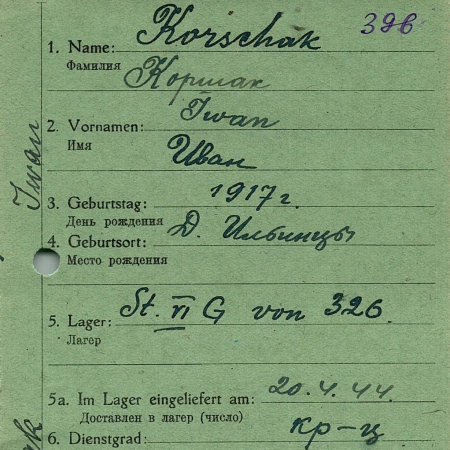 Korschak 326
1. Name:
Фамилия Коршак
Iwan
2. Vornamen: Iwan
Имя Иван
3. Geburtstag: 1917 г.
День рождения
4. Geburtsort: Д. Ильинцы
Место рождения
5. Lager: St. VI G von 326
Лагер
5a. Im Lager eingeliefert am: 20.4.44
Доставлен в лагер (число)
6. Dienstgrad: кр-ц